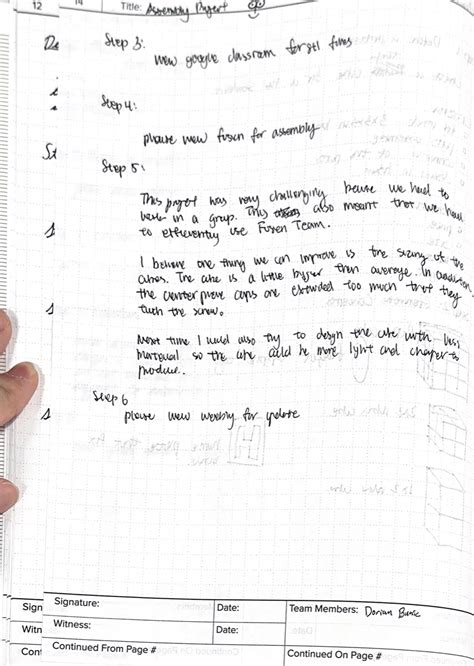 12
14
Title: Assembly Project
Step 3:
view google classroom for stl files
Step 4:
please view fusion for assembly
Step 5:
This project was very challenging because we had to
work in a group. This also meant that we had
to efficiently use Fusion Team.
I believe one thing we can improve is the sizing of the
cubes. The cube is a little bigger than average. In
the center piece caps are extended too much that they
the screw.
Next time I would also try to design the cube with less
material so the cube could be more light and cheaper to
produce.
Step 6
please view weebly for update
Sign
Signature:
Date:
Team Members: Dorian
Witn
Witness:
Date:
Cont
Continued From Page #
Continued On Page #